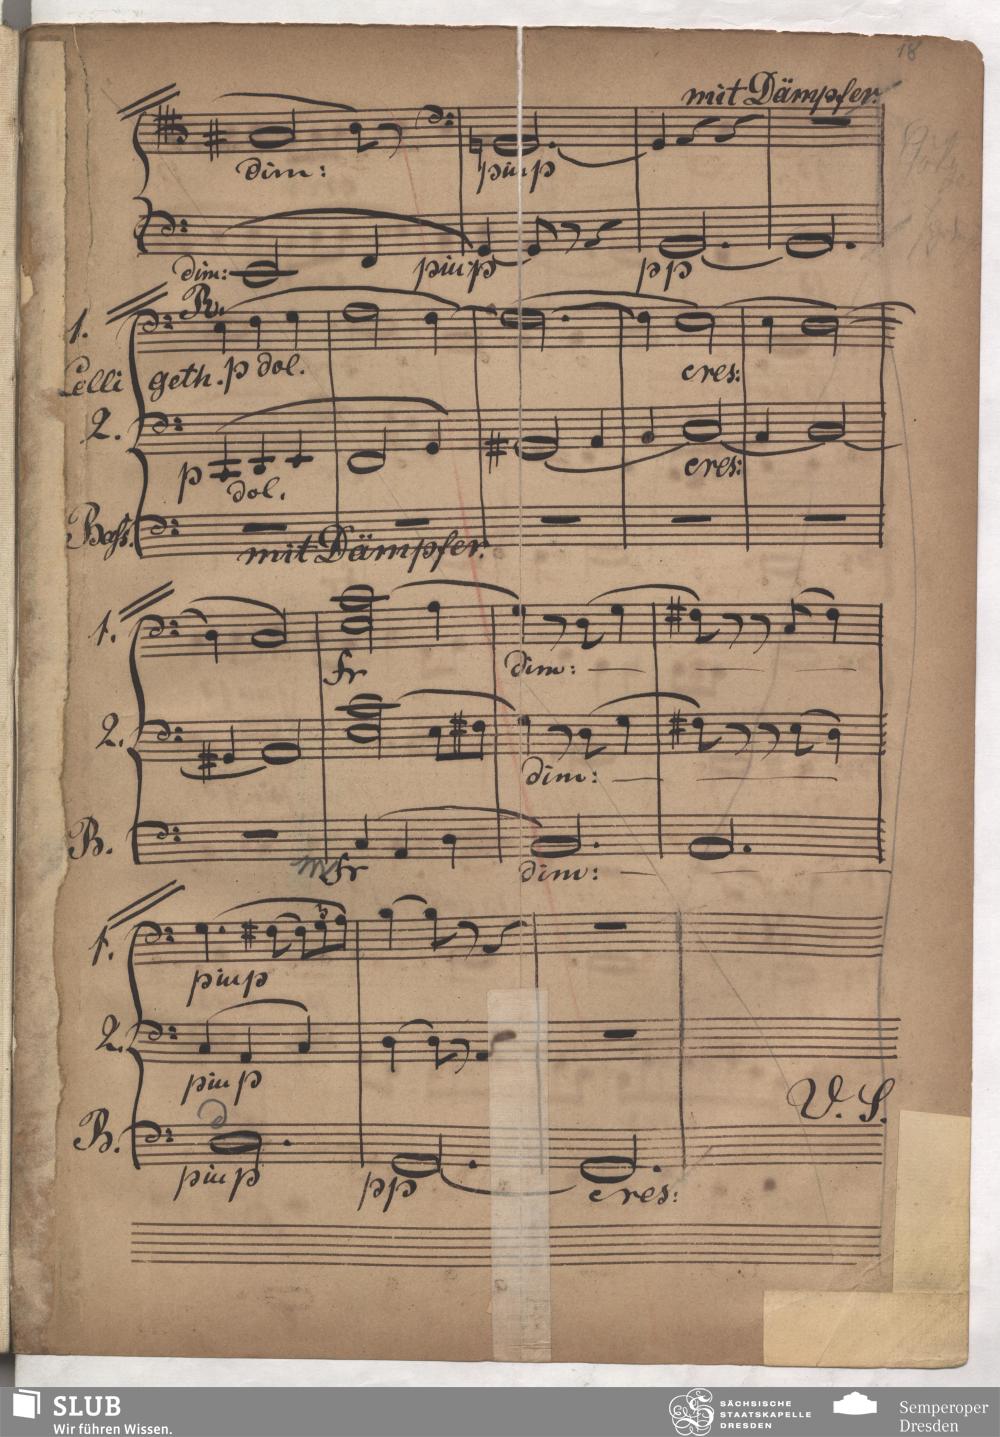 18
mit Dämpfer.
dim:
piu p
dim:
piu p
pp
1.
R.
Celli
geth. p dol.
cres:
2.
p dol.
cres:
Bass.
mit Dämpfer.
1.
fr
dim:
2.
dim:
B.
m fr
dim:
1.
3
piu p
2.
piu p
V. S.
B.
piu p
pp
cres:
SLUB
Wir führen Wissen.
SÄCHSISCHE
STAATSKAPELLE
DRESDEN
Semperoper
Dresden